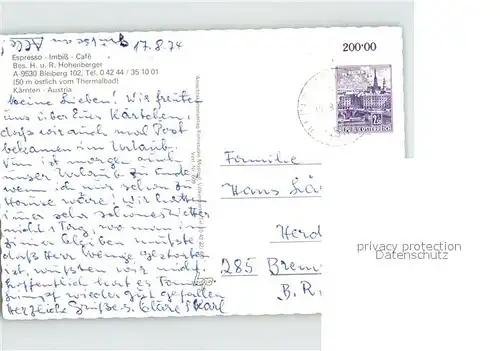 Grüssen Alle!
17.8.74
200·00
Espresso - Imbiß - Café
Bes. H. u. R. Hohenberger
A-9530 Bleiberg 102, Tel. 0 42 44 / 35 10 01
(50 m östlich vom Thermalbad)
Kärnten - Austria
Meine Lieben! Wir freuten
uns über Eure Kärtchen,
daß wir auch mal Post
bekamen im Urlaub.
Nun ist morgen auch
unser Urlaub zu Ende
wenn ich nur schon zu
Hause wäre! Wir hatten
immer sehr schönes Wetter
nicht 1 Tag, wo man im
Zimmer bleiben mußte
daß Herr
ist, wußten wir nicht.
Hoffentlich hat es
wieder gut gefallen
Herzliche Grüße s. Cläre & Karl
Familie
Hans
Herd
285 Brem
B.R.
privacy protection
Datenschutz